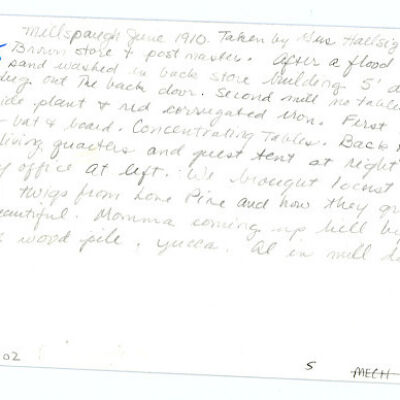 Millspaugh June 1910. Taken by Mrs Hallsig
Brown store & post master. After a flood
sand washed in back store building 5' d
dug out the back door. Second mill no tables
ide plant & red corrugated iron. First
- bat & board. Concentrating Tables. Back
living quarters and guest tent at right
y office at left. We brought locust
twigs from Lone Pine and how they gr
eautiful. Momma coming up hill by
wood pile, yucca. Al in mill d
02
5
MECH-